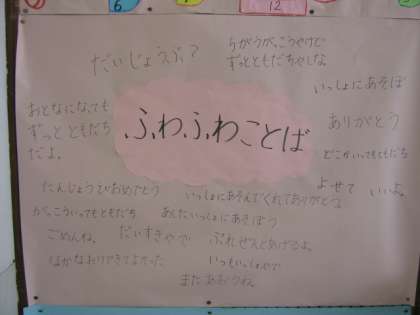 6
12
だいじょうぶ?
ちがうがっこうやけど
ずっとともだちやしな。
いっしょにあそぼ
おとなになっても
ずっとともだち
だよ。
ふわふわことば
ありがとう
どこかいってもともだち
よせて いいよ。
たんじょうびおめでとう
いっしょにあそんでくれてありがとう
がっこういってもともだち
あしたいっしょにあそぼう
ごめんね。
だいすきやで
ぷれぜんとあげるよ。
なかなおりできてよかった
いつもいっしょやで
またあおうね